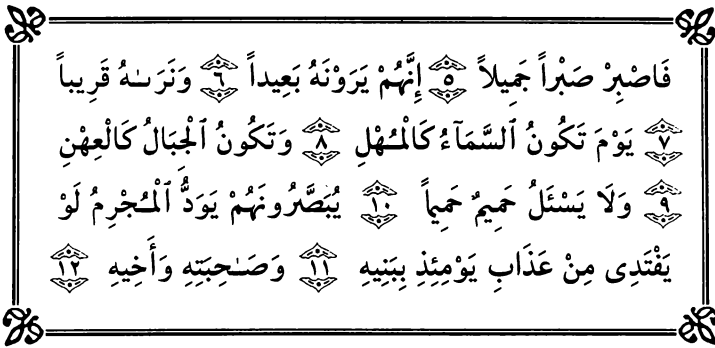 فَاصْبِرْ صَبْراً جَمِيلاً ٥ إِنَّهُمْ يَرَوْنَهُ بَعِيداً ٦ وَنَرَىٰهُ قَرِيباً
٧ يَوْمَ تَكُونُ ٱلسَّمَآءُ كَالْمُهْلِ ٨ وَتَكُونُ ٱلْجِبَالُ كَالْعِهْنِ
٩ وَلَا يَسْـَٔلُ حَمِيمٌ حَمِيماً ١٠ يُبَصَّرُونَهُمْ يَوَدُّ ٱلْمُجْرِمُ لَوْ
يَفْتَدِى مِنْ عَذَابِ يَوْمِئِذٍ بِبَنِيهِ ١١ وَصَـٰحِبَتِهِ وَأَخِيهِ ١٢